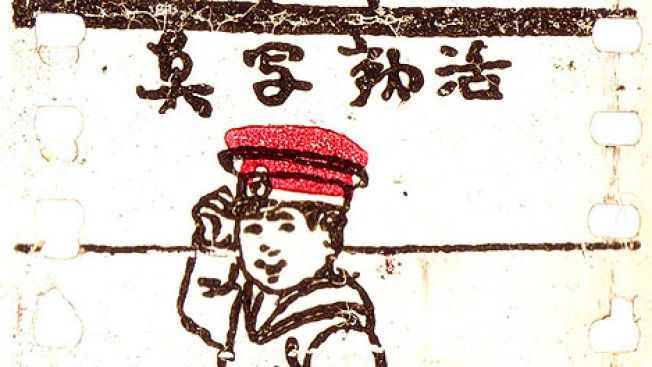 活動写真